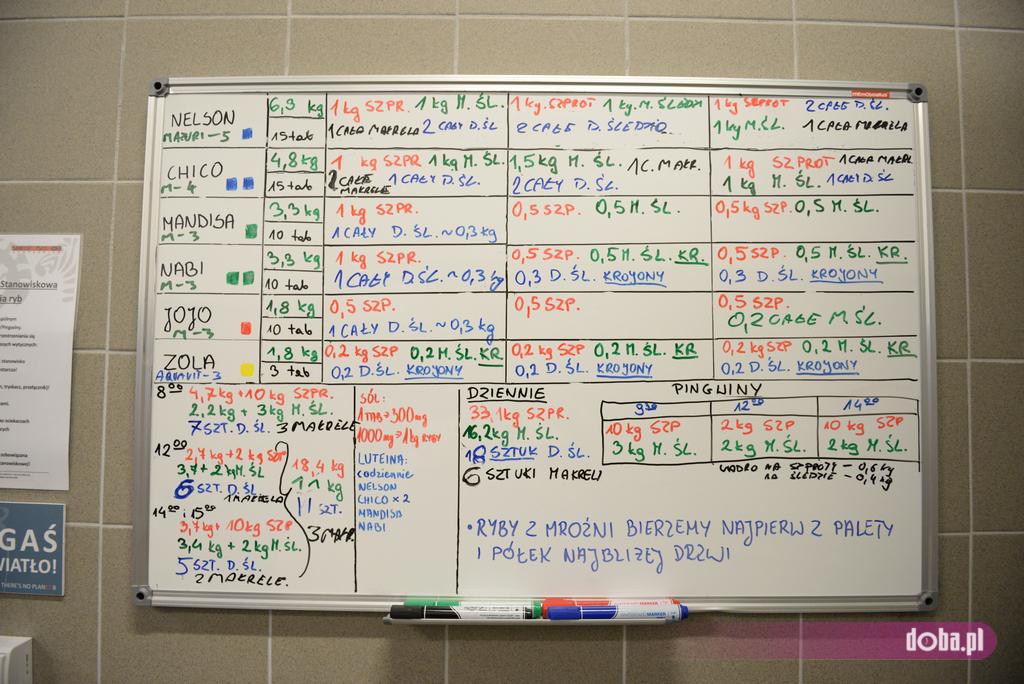 NELSON 6,3 kg 1 kg SZPR. 1 kg M. ŚL. 1 kg. SZPROT 1 kg. M. ŚLEDZIA 1 kg SZPROT 2 CAŁE D. ŚL.
MAZURI-5 15 tab 1 CAŁA MAKRELA 2 CAŁY D. ŚL 2 CAŁE D. ŚLEDZIA 1 kg M. ŚL. 1 CAŁA MAKRELA
CHICO 4,8 kg 1 kg SZPR 1 kg M. ŚL. 1,5 kg M. ŚL. 1 C. MAKR. 1 kg SZPROT 1 CAŁA MAKRL
M-4 15 tab 2 CAŁE MAKRELE 1 CAŁY D. ŚL. 2 CAŁY D. ŚL. 1 kg M. ŚL. 1 CAŁY D. ŚL
MANDISA 3,3 kg 1 kg SZPR. 0,5 SZP. 0,5 M. ŚL. 0,5 kg SZP. 0,5 M. ŚL.
M-3 10 tab 1 CAŁY D. ŚL. ~ 0,3 kg
NABI 3,3 kg 1 kg SZPR. 0,5 SZP. 0,5 M. ŚL. KR. 0,5 SZP. 0,5 M. ŚL. KR.
M-3 10 tab 1 CAŁY D. ŚL. ~ 0,3 kg 0,3 D. ŚL. KROJONY 0,3 D. ŚL. KROJONY
JOJO 1,8 kg 0,5 SZP. 0,5 SZP. 0,5 SZP.
M-3 10 tab 1 CAŁY D. ŚL. ~ 0,3 kg 0,2 CAŁE M. ŚL.
ZOLA 1,8 kg 0,2 kg SZP 0,2 M. ŚL. KR 0,2 kg SZP 0,2 M. ŚL. KR 0,2 kg SZP 0,2 M. ŚL. KR
AQUAVIT-3 3 tab 0,2 D. ŚL. KROJONY 0,2 D. ŚL. KROJONY 0,2 D. ŚL. KROJONY
8⁰⁰ 4,7 kg + 10 kg SZPR.
2,2 kg + 3 kg M. ŚL.
7 SZT. D. ŚL. 3 MAKRELE
12⁰⁰ 2,7 kg + 2 kg SZP
3,7 + 2 kg M. ŚL
6 SZT. D. ŚL
1 MAKRELA
14⁰⁰ i 15⁰⁰
3,7 kg + 10 kg SZP
3,4 kg + 2 kg M. ŚL.
5 SZT. D. ŚL.
2 MAKRELE.
18,4 kg
11 kg
11 SZT.
3 MAKR.
SÓL:
1 TAB → 300 mg
1000 mg → 1 kg RYBY
LUTEINA:
codziennie
NELSON
CHICO × 2
MANDISA
NABI
DZIENNIE
33,1 kg SZPR.
16,2 kg M. ŚL.
18 SZTUK D. ŚL.
6 SZTUKI MAKRELI
PINGWINY
9³⁰ 12⁰⁰ 14⁰⁰
10 kg SZP 2 kg SZP 10 kg SZP
3 kg M. ŚL. 2 kg M. ŚL. 2 kg M. ŚL.
WADRO NA SZPROTY - 0,6 kg
NA ŚLEDZIE - 0,4 kg
• RYBY Z MROŹNI BIERZEMY NAJPIERW Z PALETY
I PÓŁEK NAJBLIŻEJ DRZWI
Stanowiskowa
ia ryb
GAŚ
WIATŁO!
THERE'S NO PLAN B
doba.pl